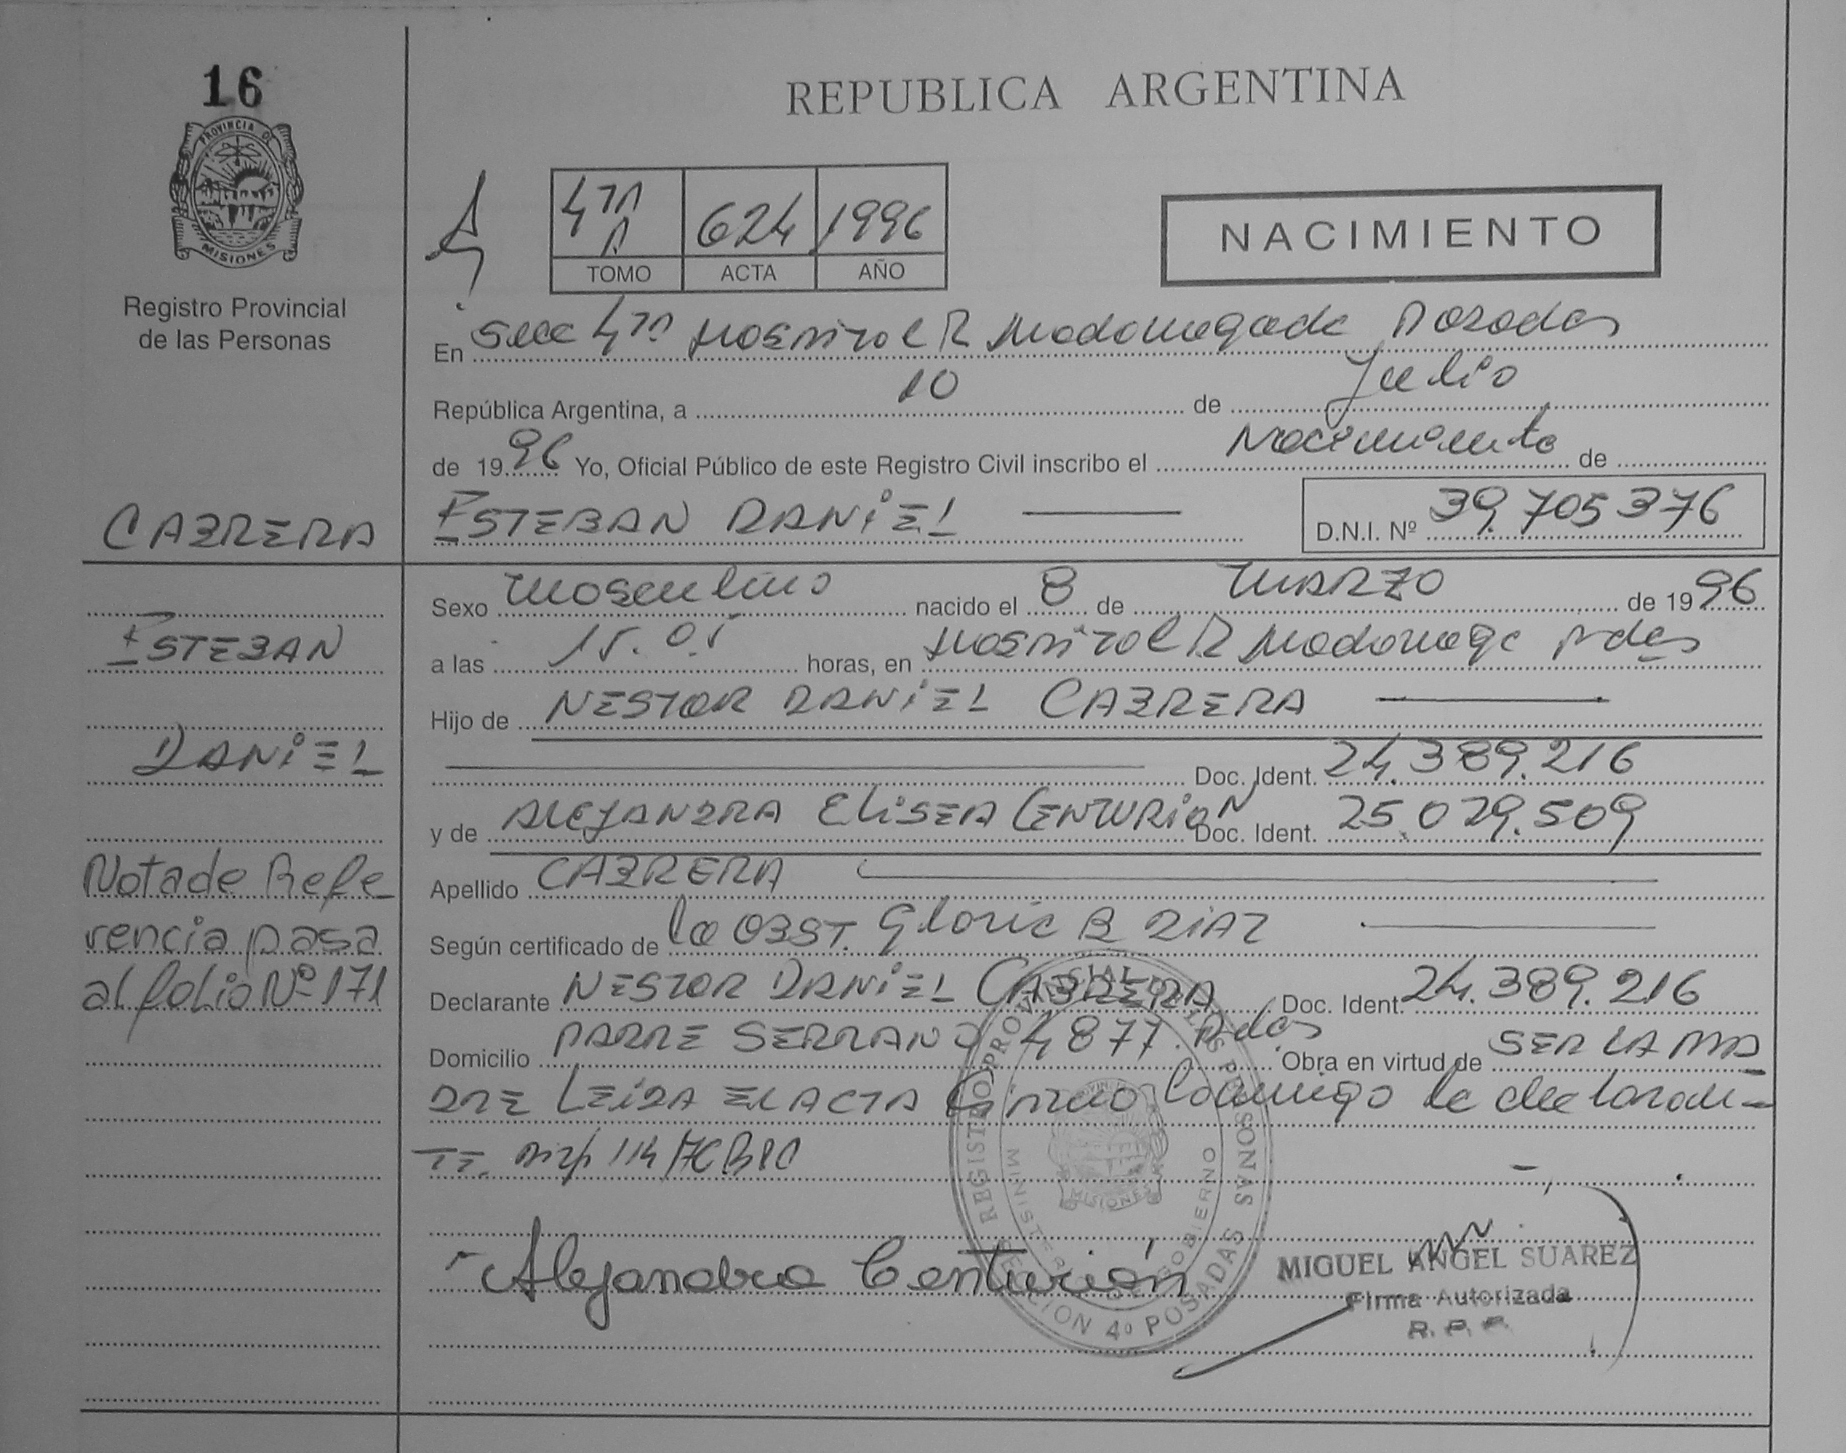 16
PROVINCIA DE
MISIONES
Registro Provincial
de las Personas
REPUBLICA ARGENTINA
4ta A 624 1996
TOMO ACTA AÑO
NACIMIENTO
En Secc 4ta Hospital R Madariaga de Posadas
República Argentina, a 10 de Julio
de 1996 Yo, Oficial Público de este Registro Civil inscribo el Nacimiento de
CABRERA ESTEBAN DANIEL D.N.I. Nº 39.705376
Sexo Masculino nacido el 8 de MARZO de 1996
ESTEBAN
a las 15.05 horas, en Hospital R Madariaga Pdas
Hijo de NESTOR DANIEL CABRERA
DANIEL
Doc. Ident. 24.389.216
y de ALEJANDRA ELISEA CENTURION Doc. Ident. 25.029.509
Nota de Refe
rencia pasa
al folio Nº 171
Apellido CABRERA
Según certificado de la OBST. Gloria B DIAZ
Declarante NESTOR DANIEL CABRERA Doc. Ident. 24.389.216
Domicilio PADRE SERRANO 4877. Pdas Obra en virtud de SER LA MA
DRE LEIDA EL ACTA Firmo Conmigo la declaran-
TE.
Alejandra Centurión
REGISTRO PROVINCIAL DE LAS PERSONAS
MINISTERIO DE GOBIERNO
SECCION 4º POSADAS
MIGUEL ANGEL SUAREZ
Firma Autorizada
R. P. P.